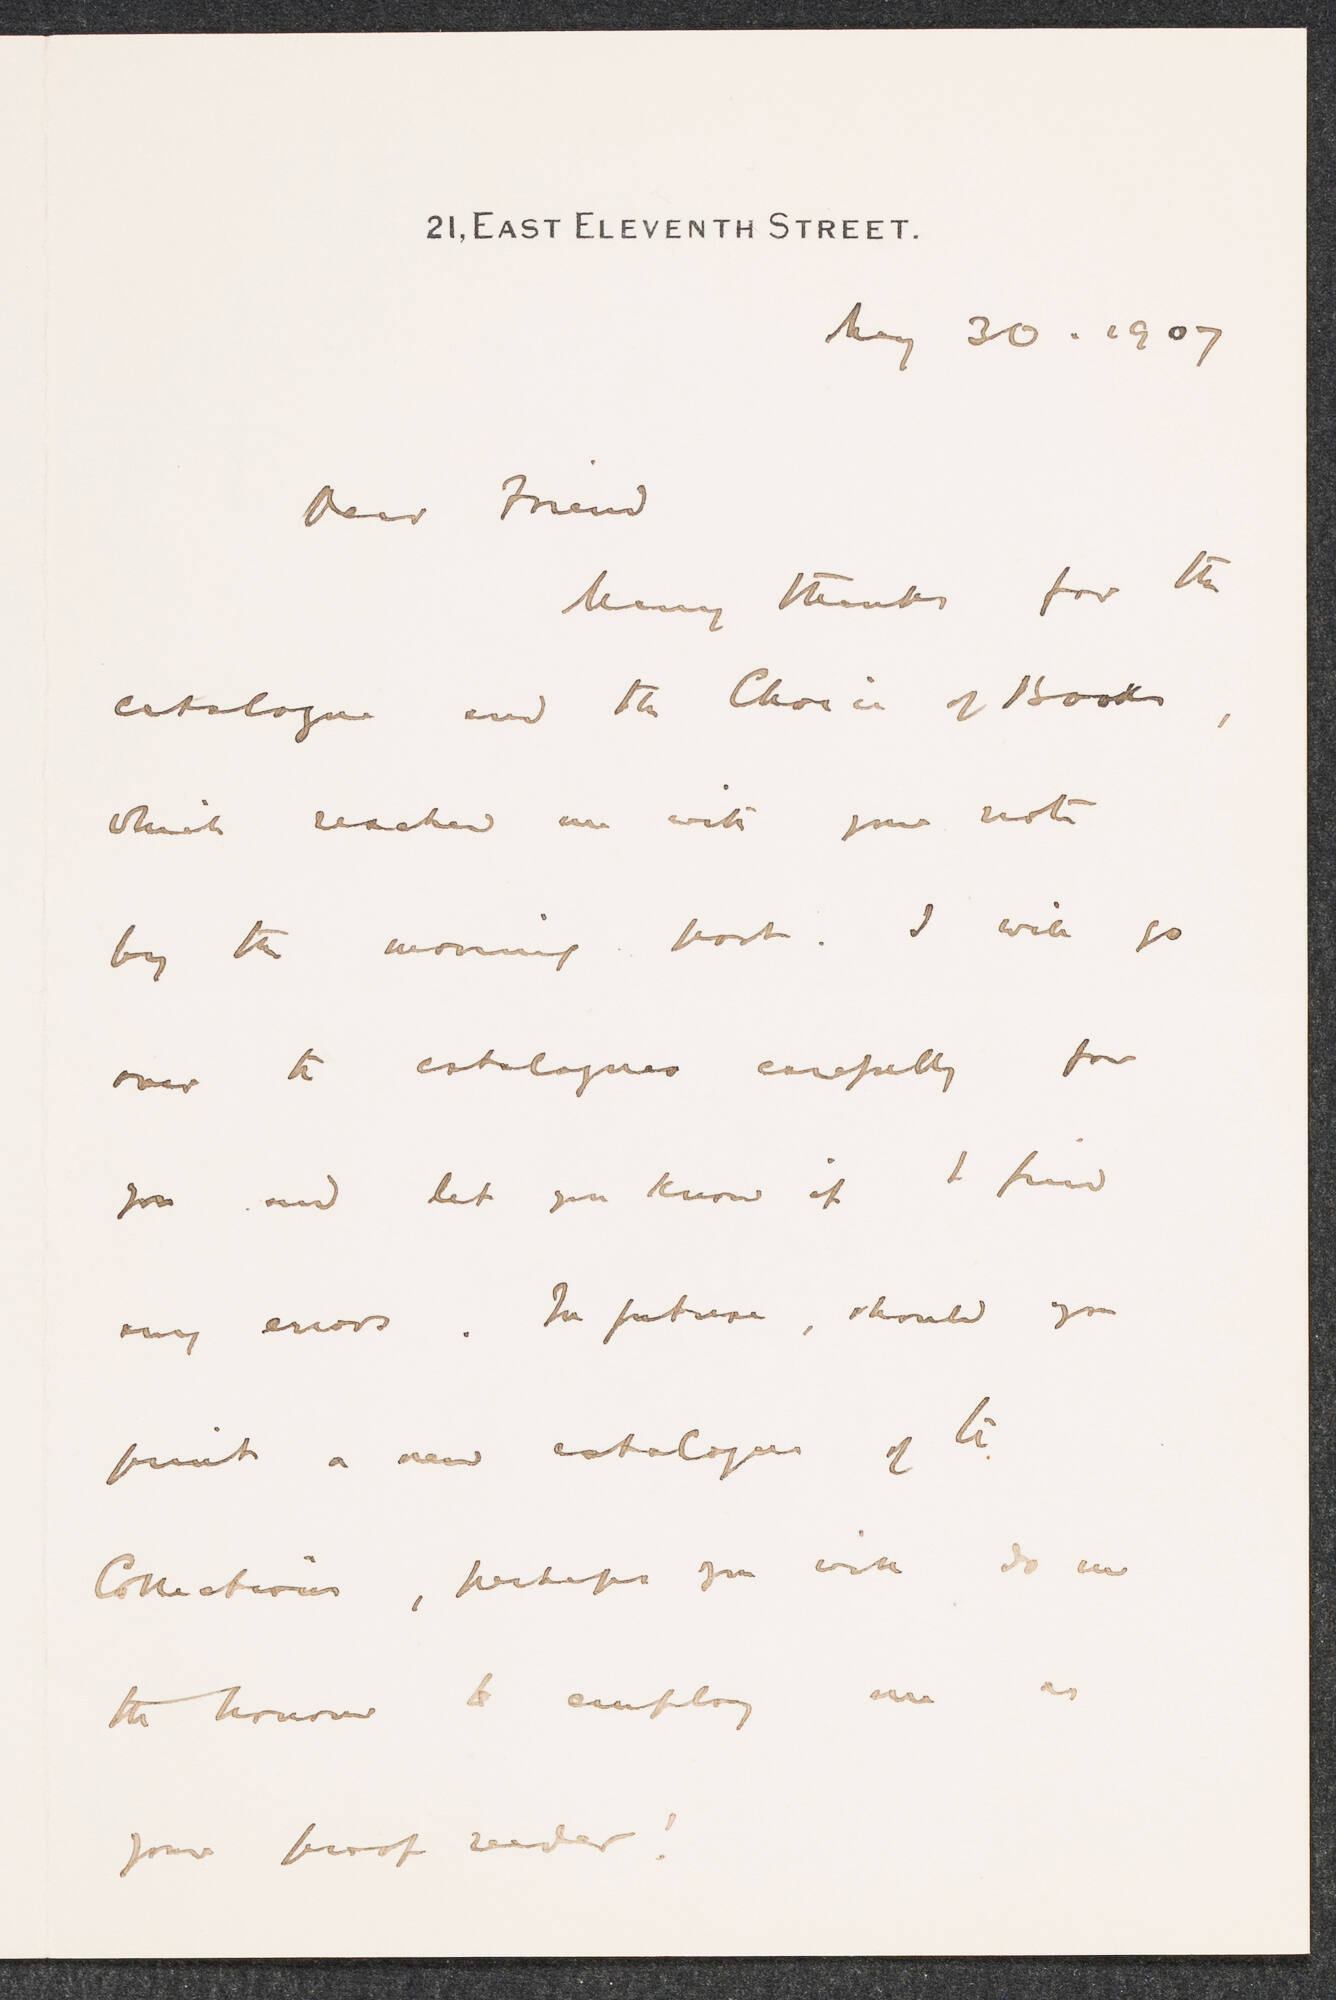 21, EAST ELEVENTH STREET.
May 30. 1907
Dear Friend
Many thanks for the
catalogue and the Choice of Books,
which reached me with your note
by the morning post. I will go
over the catalogues carefully for
you and let you know if I find
any errors. In future, should you
print a new catalogue of the
Collections, perhaps you will do me
the honour to employ me as
your proof reader!